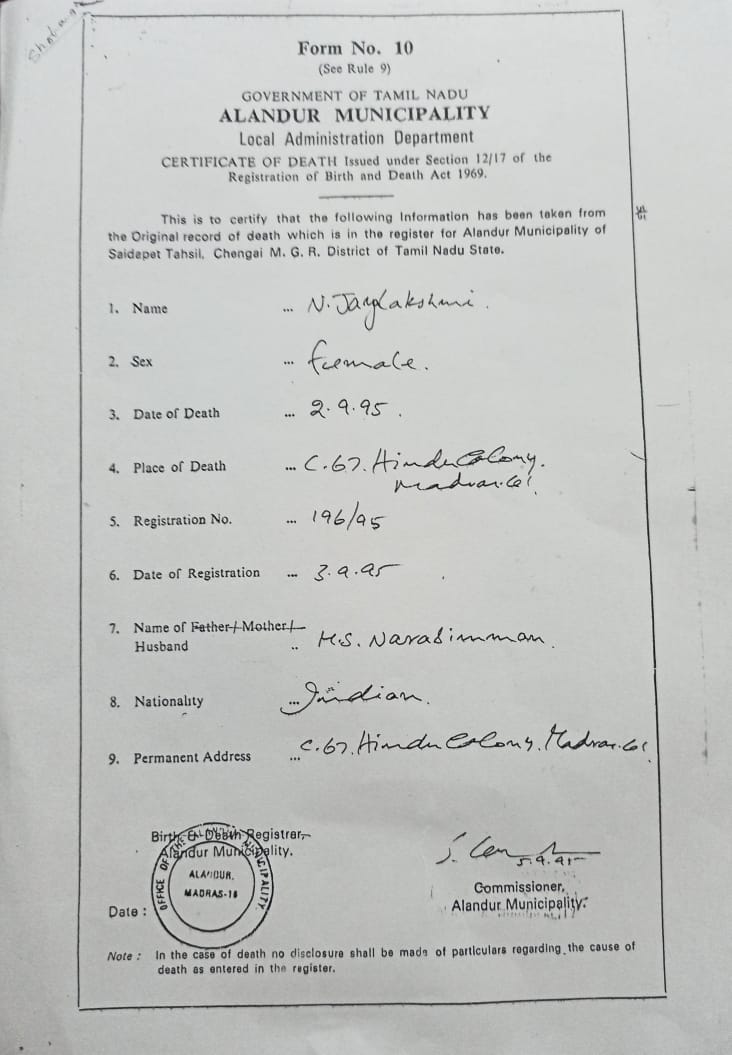 Form No. 10
(See Rule 9)
GOVERNMENT OF TAMIL NADU
ALANDUR MUNICIPALITY
Local Administration Department
CERTIFICATE OF DEATH Issued under Section 12/17 of the
Registration of Birth and Death Act 1969.
This is to certify that the following Information has been taken from
the Original record of death which is in the register for Alandur Municipality of
Saidapet Tahsil, Chengai M. G. R. District of Tamil Nadu State.
1. Name ... N. Jayalakshmi.
2. Sex ... Female.
3. Date of Death ... 2.9.95.
4. Place of Death ... C.67. Hindu Colony.
5. Registration No. ... 196/95
6. Date of Registration ... 3.9.95
7. Name of Father/ Mother/
Husband .. Narasimman.
8. Nationality ... Indian.
9. Permanent Address ... C.67. Hindu Colony.
Birth & Death Registrar,
Alandur Municipality.
OFFICE OF THE MUNICIPALITY
ALANDUR,
MADRAS-16
Date :
5.9.95
Commissioner,
Alandur Municipality.
Note : In the case of death no disclosure shall be made of particulars regarding the cause of
death as entered in the register.